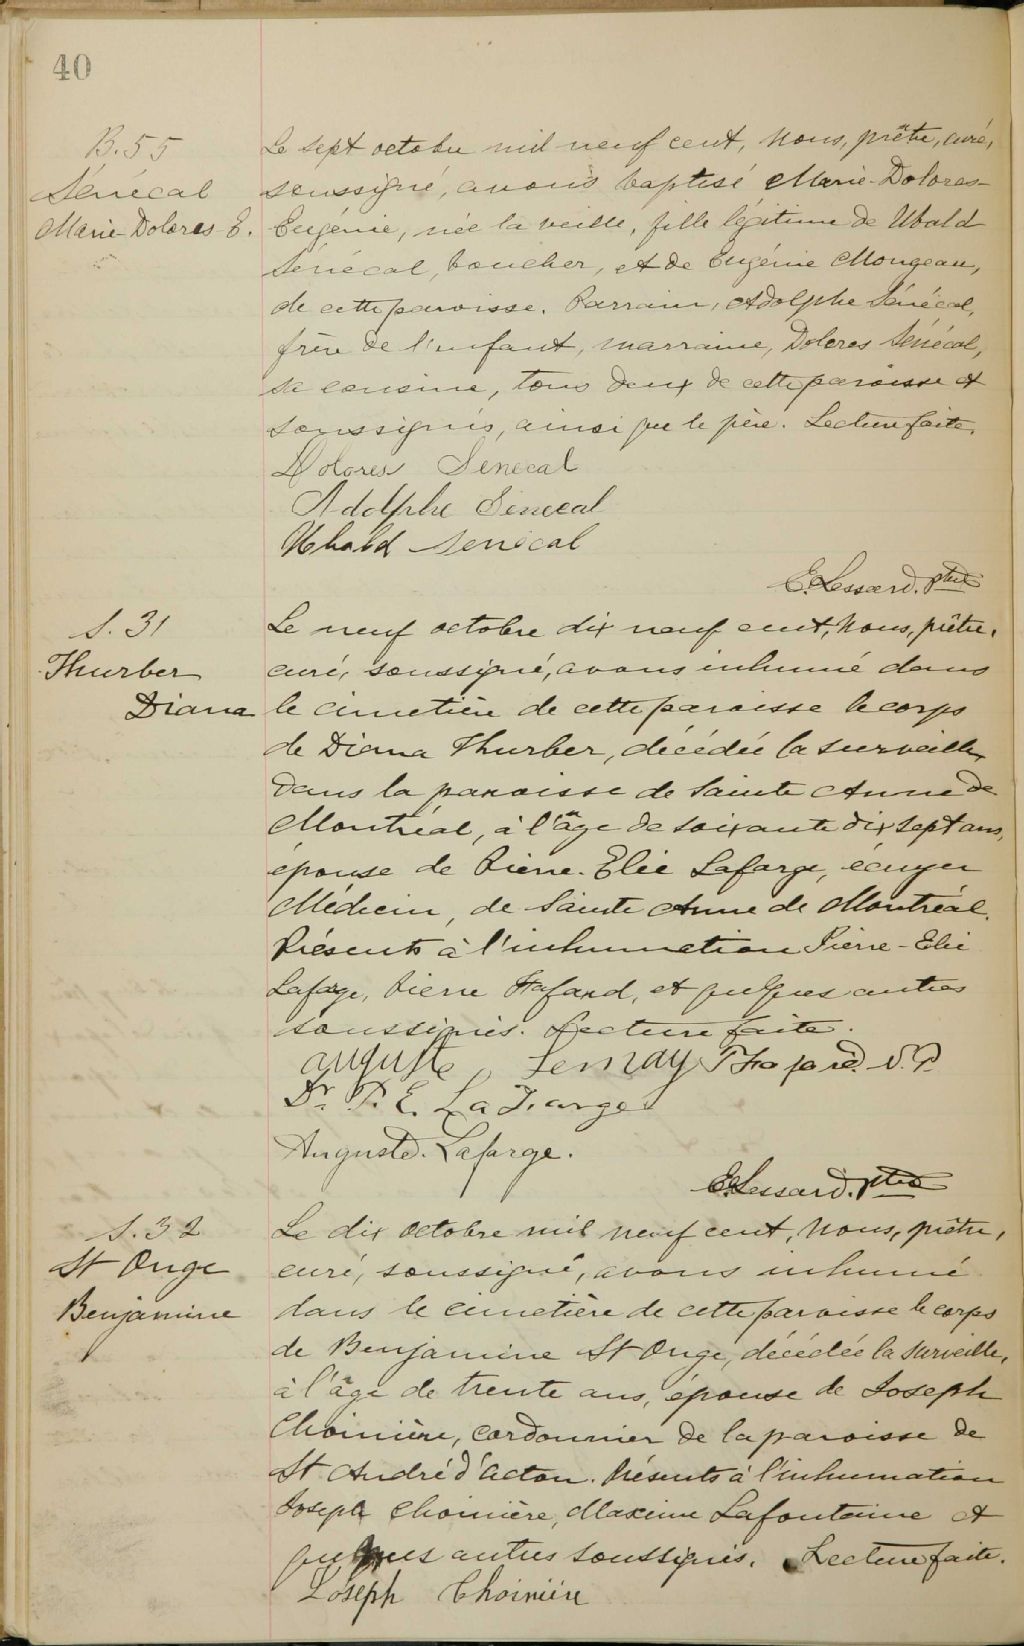 40
B. 55
Sénécal
Marie-Dolores-E.
Le sept octobre mil neuf cent, Nous, prêtre, curé,
soussigné, avons baptisé Marie-Dolores-
Eugénie, née la veille, fille légitime de Ubald
Sénécal, boucher, et de Eugénie Mongeau,
de cette paroisse. Parrain, Adolphe Sénécal,
frère de l'enfant, marraine, Dolores Sénécal,
sa cousine, tous deux de cette paroisse et
soussignés, ainsi que le père. Lecture faite.
Dolores Senecal
Adolphe Senecal
Ubald Senécal
E. Lessard. ptre
S. 31
Thurber
Diana
Le neuf octobre dix neuf cent, Nous, prêtre,
curé, soussigné, avons inhumé dans
le cimetière de cette paroisse le corps
de Diana Thurber, décédée la surveille,
dans la paroisse de Sainte Anne de
Montréal, à l'âge de soixante dix sept ans,
épouse de Pierre-Elie Lafarge, écuyer
Médecin, de Sainte Anne de Montréal.
Présents à l'inhumation Pierre-Elie
Lafarge, Pierre Hafard, et quelques autres
soussignés. Lecture faite.
auguste Lemay P Hafard. N.P.
Dr. P. E. LaFarge
Auguste. Lafarge.
E. Lessard. ptre
S. 32
St Onge
Benjamine
Le dix octobre mil neuf cent, Nous, prêtre,
curé, soussigné, avons inhumé
dans le cimetière de cette paroisse le corps
de Benjamine St Onge, décédée la surveille,
à l'âge de trente ans, épouse de Joseph
Choinière, cordonnier de la paroisse de
St André d'Acton. Présents à l'inhumation
Joseph Choinière, Maxime Lafontaine et
quelques autres soussignés. Lecture faite.
Joseph Choinière